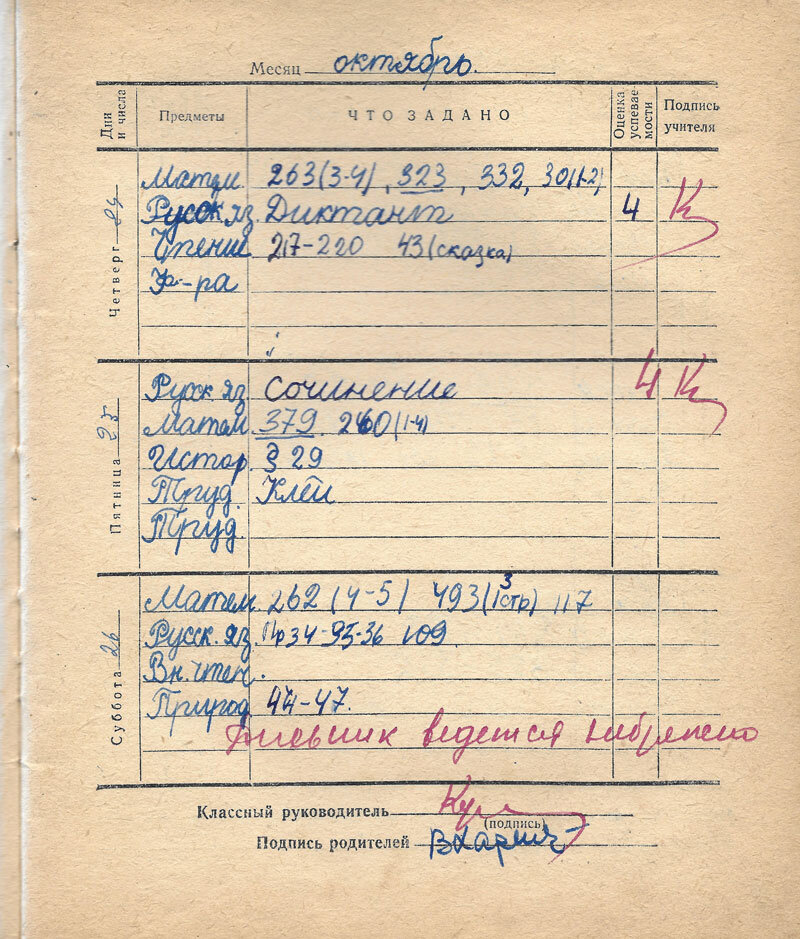 Месяц октябрь.
Дни и числа Предметы ЧТО ЗАДАНО Оценка успеваемости Подпись учителя
Четверг 24
Матем. 263(3-4), 323, 332, 30(1-2)
Русск яз. Диктант 4 К
Чтение 217-220 43(сказка)
Ф-ра
Пятница 25
Русск яз. Сочинение 4 К
Матем. 379. 260(1-4)
Истор. § 29
Труд. Клей
Труд.
Суббота 26
Матем. 262 (4-5) 493(3стр) 117
Русск. яз. Пр34-95-36 109
Вн. чтен.
Природ. 44-47.
Дневник ведется небрежно
Классный руководитель
(подпись)
Подпись родителей